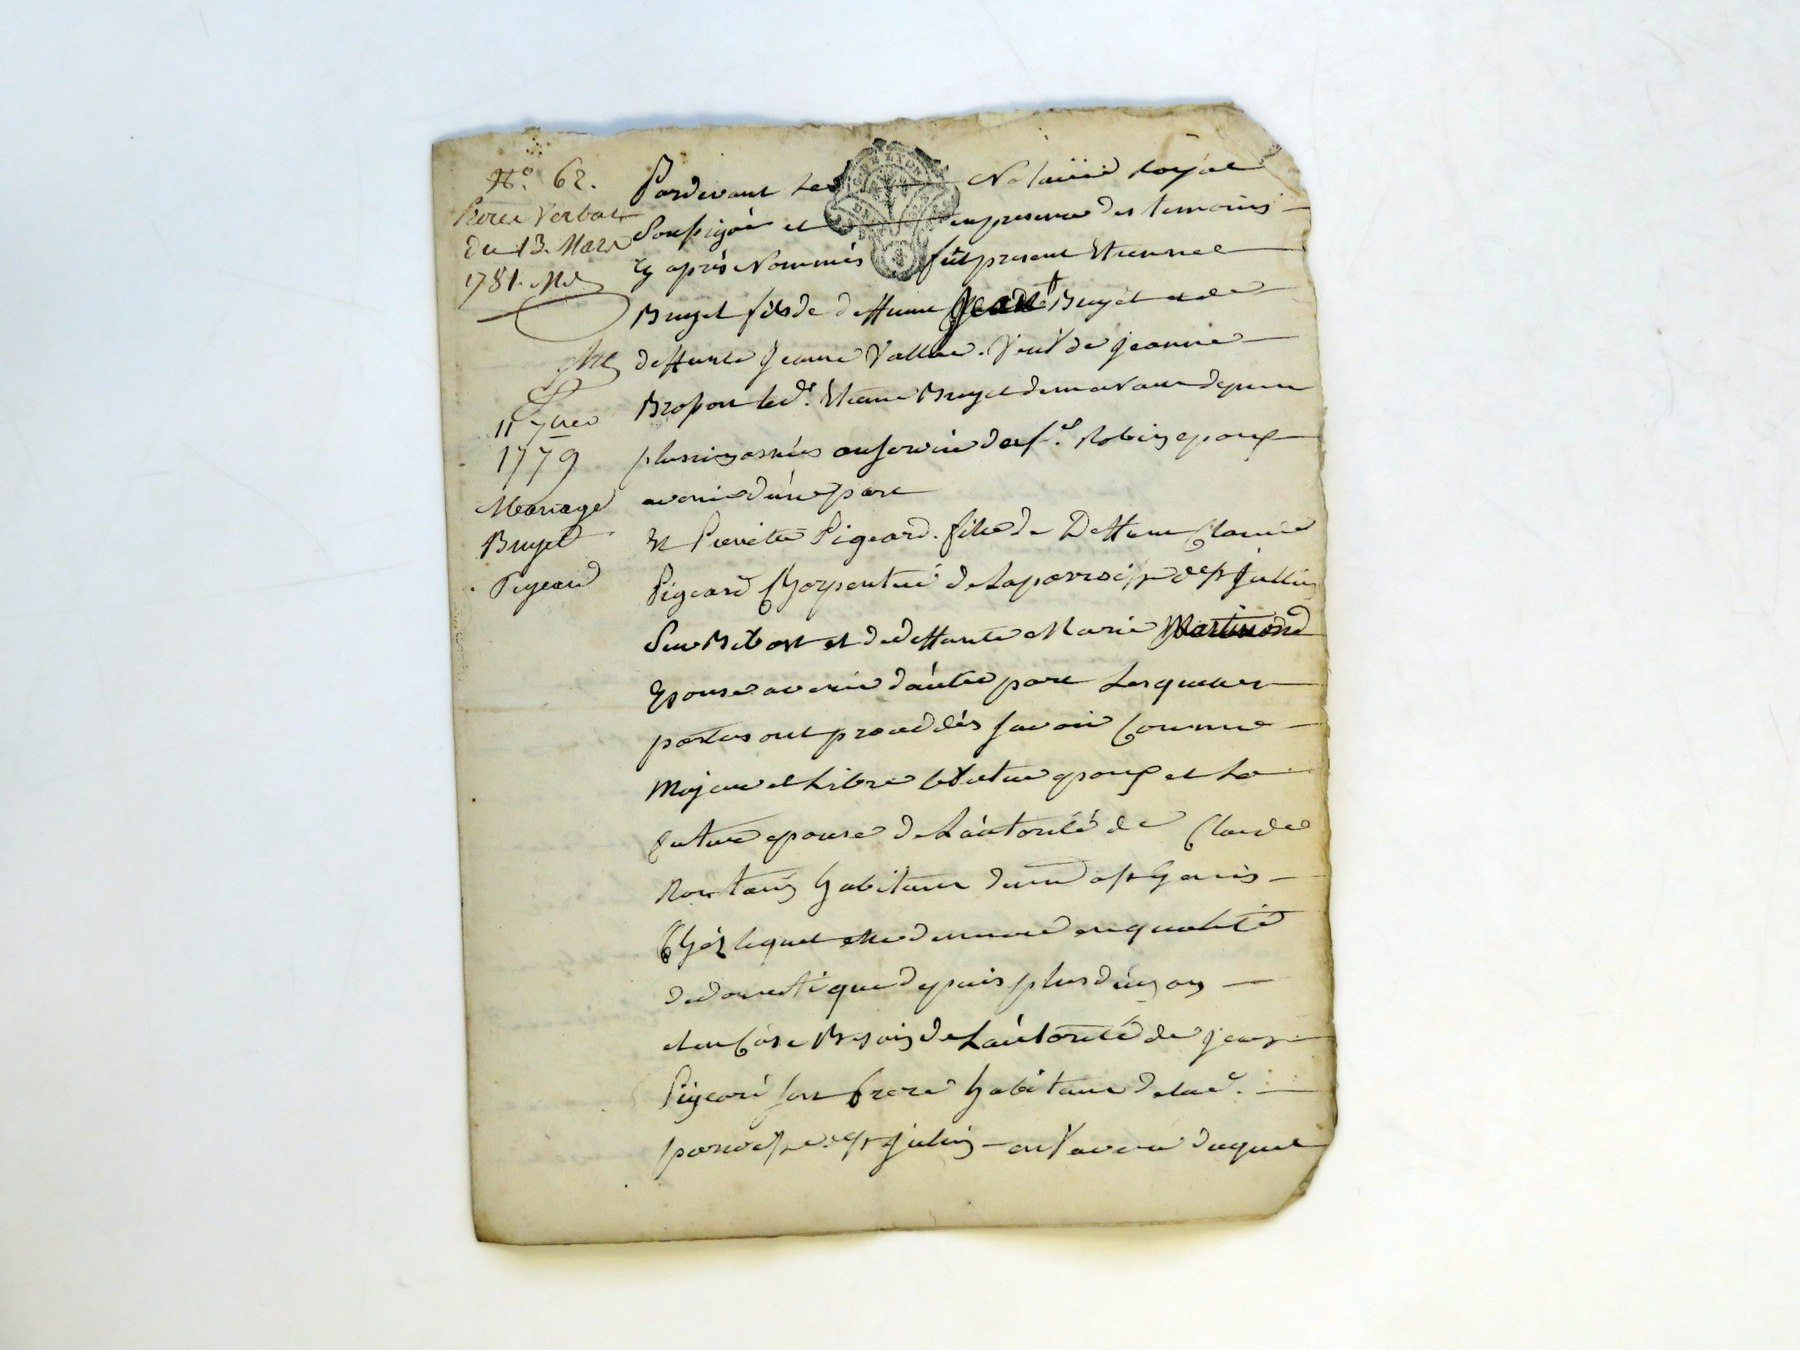 N.° 62.
Procès Verbal
du 13. Mars
1781.
11 7bre
1779
Mariage
Bruyet
Pigeard
Pardevant Le Notaire Royal
Soussigné et en presence des temoins
cy après Nommés fût present Etienne
Bruyet fils de deffunt Jean Bruyet et de
deffunte Jeanne Vallée. Veuf de jeanne
Brosson led.t Etienne Bruyet demeurant depuis
plusieurs années au service du s.r Robin epoux
avenir d'une part
Et Pierrette Pigeard. fille de Deffunt Claude
Pigeard Charpentier de La parroisse de st Jullien
Sur Bibost et de deffunte Marie Martinond
Epouse avenir d'autre part Lesquelles
parties ont procédés savoir Comme
Majeur et Libre le futur epoux et La
future epouse de L'autorité de Claude
habitant dud st Genis
Chéz lequel elle demeure en qualité
de domestique depuis plus d'un an
et en Cas de Besoin de L'autorité de jean
Pigeard son frere habitant de lad.
parroisse st julien en faveur duquel